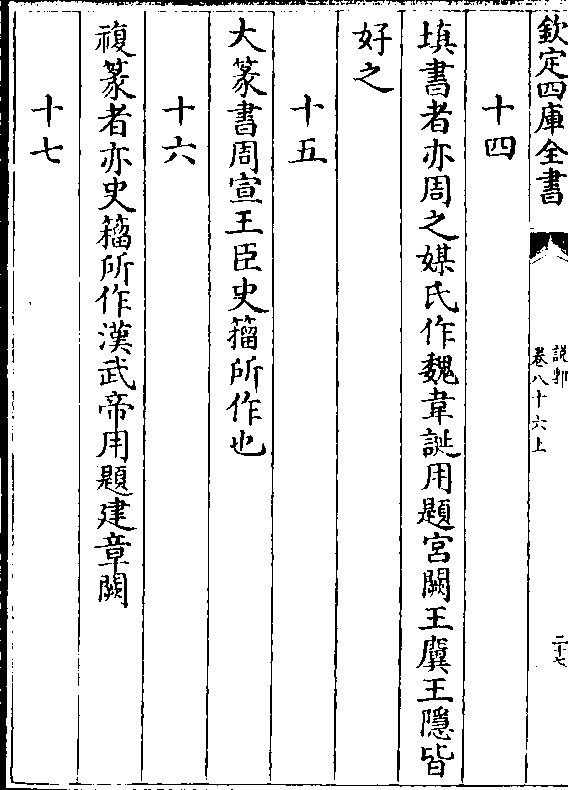 欽定四庫全書
説郛
卷八十六上
二十七
十四
填書者亦周之媒氏作魏韋誕用題宮闕王廙王隱皆
好之
十五
大篆書周宣王臣史籀所作也
十六
複篆者亦史籀所作漢武帝用題建章闕
十七